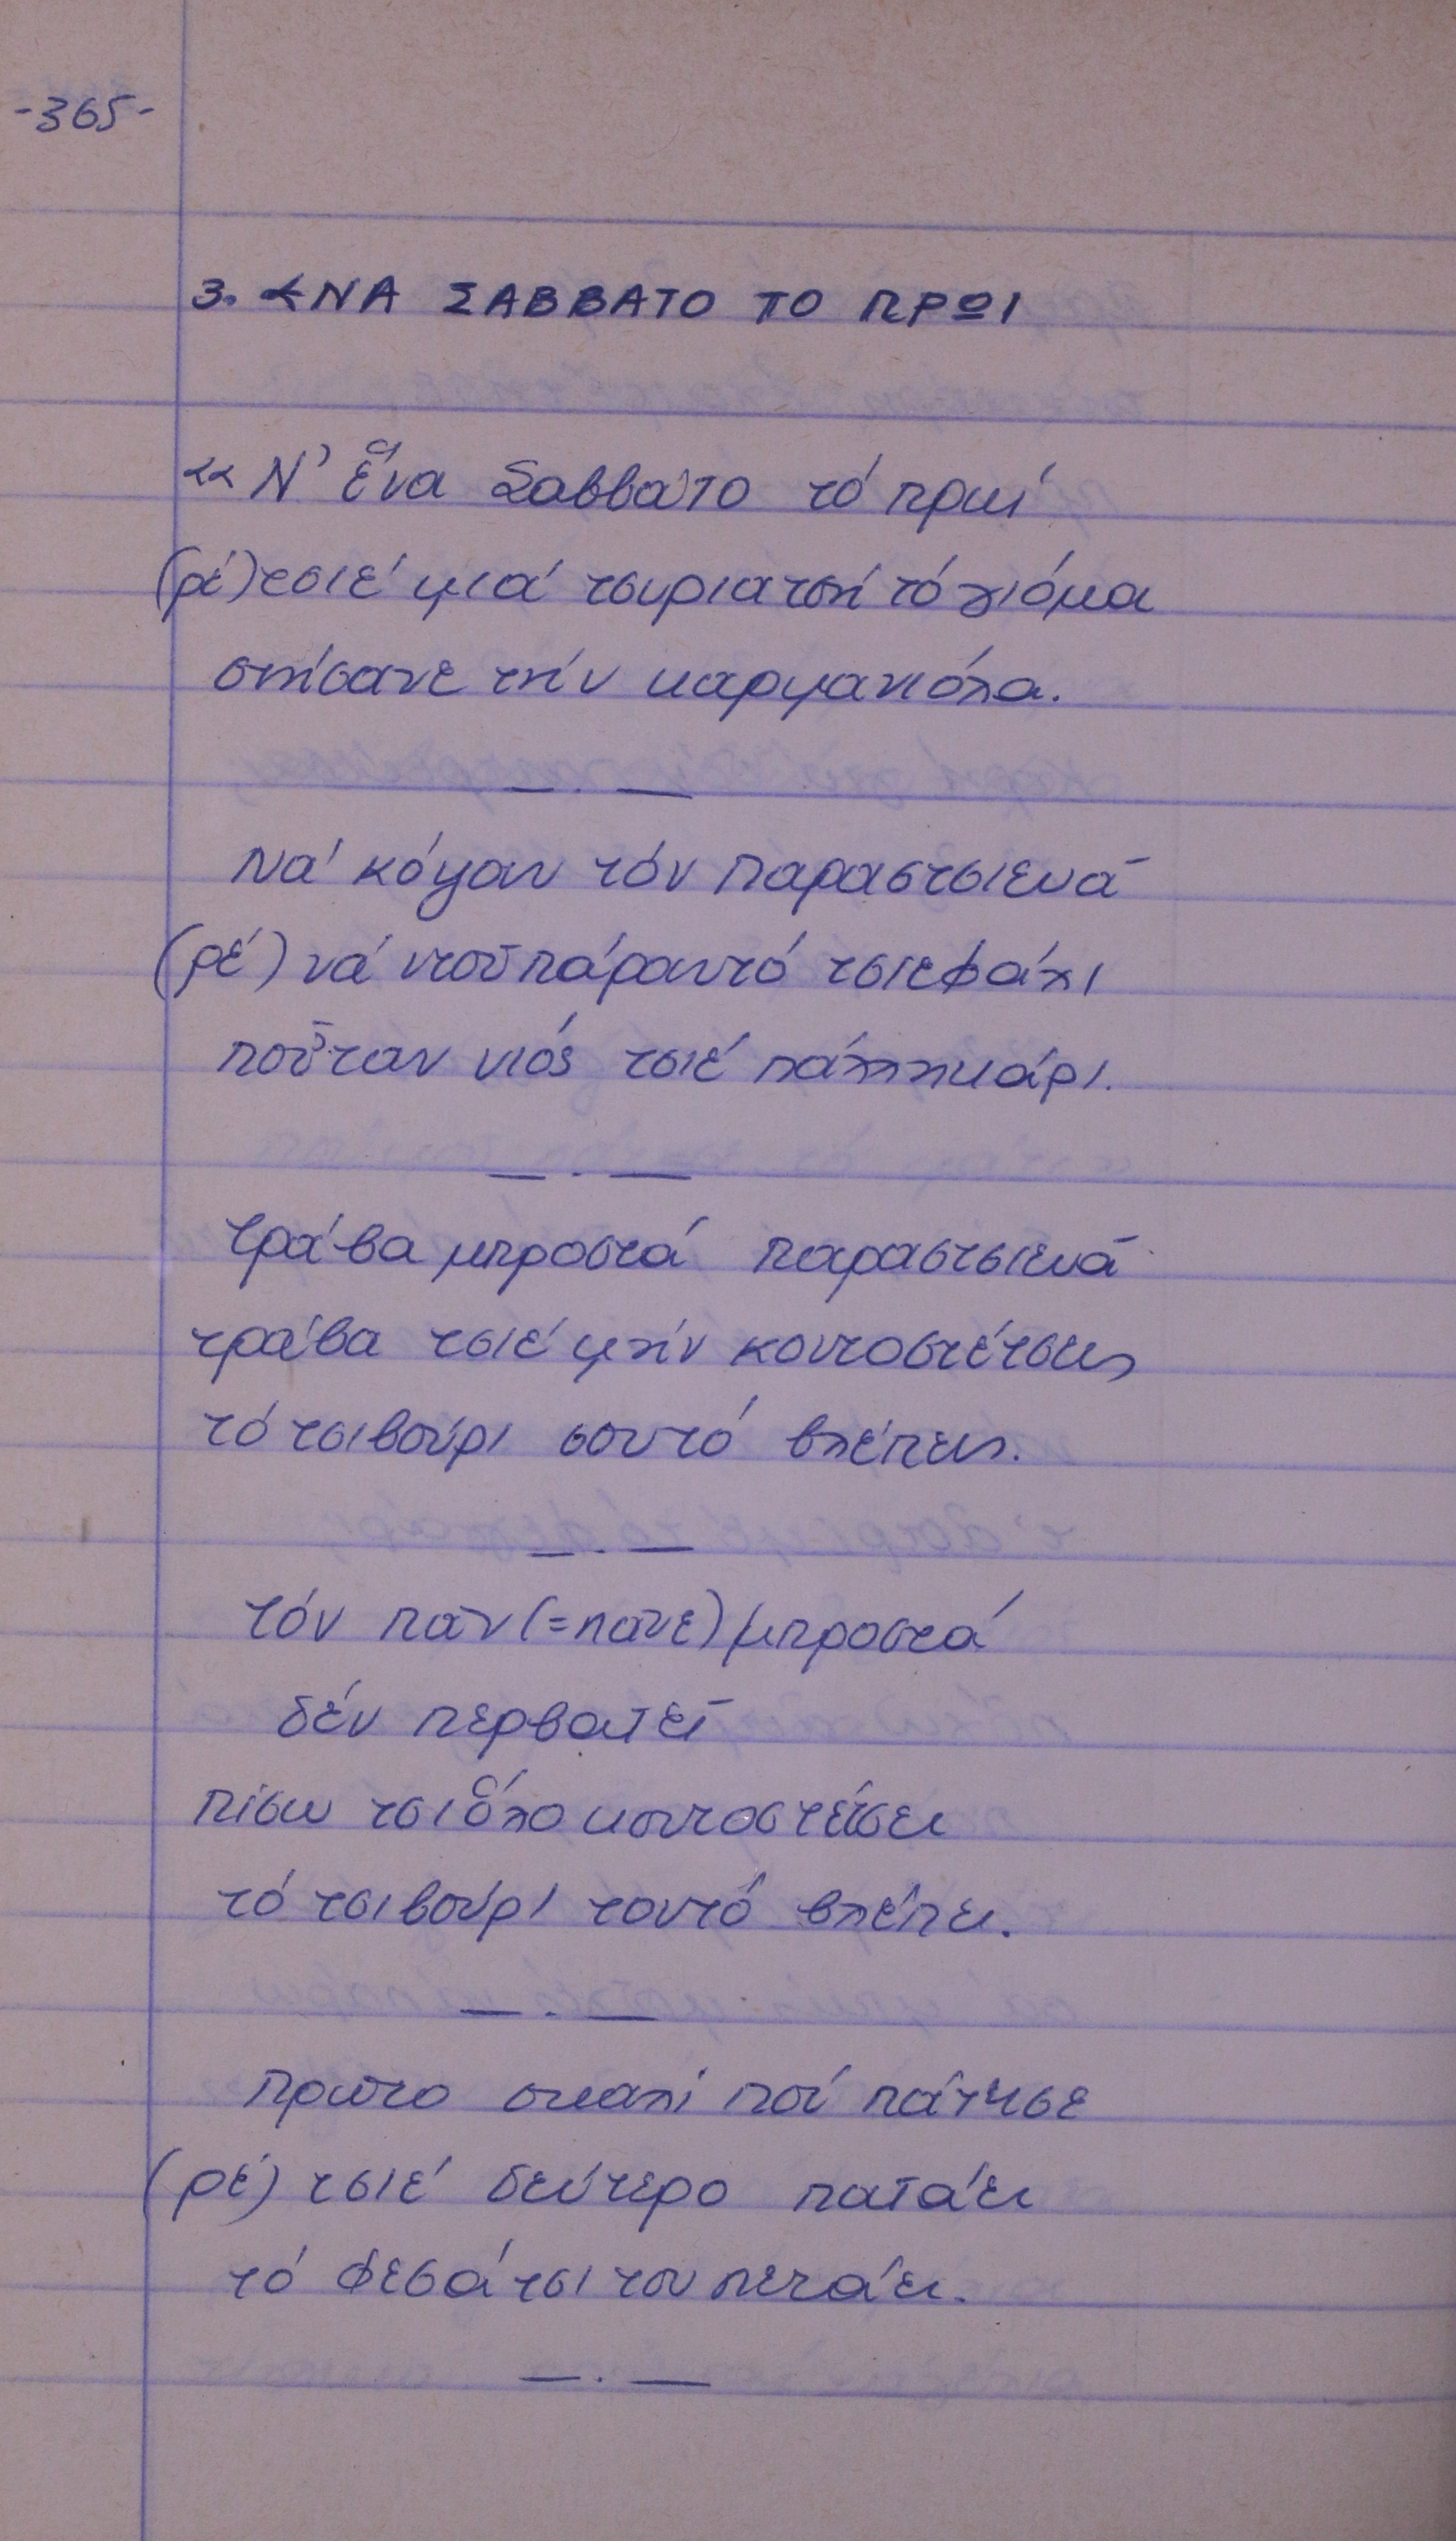 -365-
3. ΕΝΑ ΣΑΒΒΑΤΟ ΤΟ ΠΡΩΙ
«Ν' ἕνα Σαββάτο τό πρωί
(ρέ) τσιέ μιά τσυριατσή τό γιόμα
στήσανε τήν καρμανιόλα.
— . —
Νά κόψουν τόν Παραστσιευᾶ
(ρέ) νά ντοῦ πάρουν τό τσιεφάλι
ποὖταν νιός τσιέ πάλληκάρι.
— . —
Τράβα μπροστά Παραστσιευᾶ
τράβα τσιέ μήν κοντοστέτσεις
τό τσιβούρι σου τό βλέπεις.
— . —
Τόν πᾶν (=πᾶνε) μπροστά
δέν περβατεῖ
πίσω τσι ὅλο κοντοστέτσει
τό τσιβούρι του τό βλέπει.
— . —
Πρῶτο σκαλί πού πάτησε
(ρέ) τσιέ δεύτερο πατάει
τό φεσάτσι του πετάει.
— . —